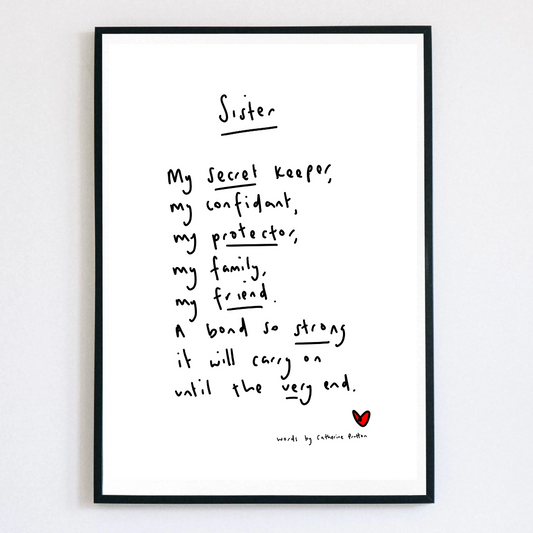 Sister
My secret keeper,
my confidant,
my protector,
my family,
my friend.
A bond so strong
it will carry on
until the very end.
words by Catherine Prutton